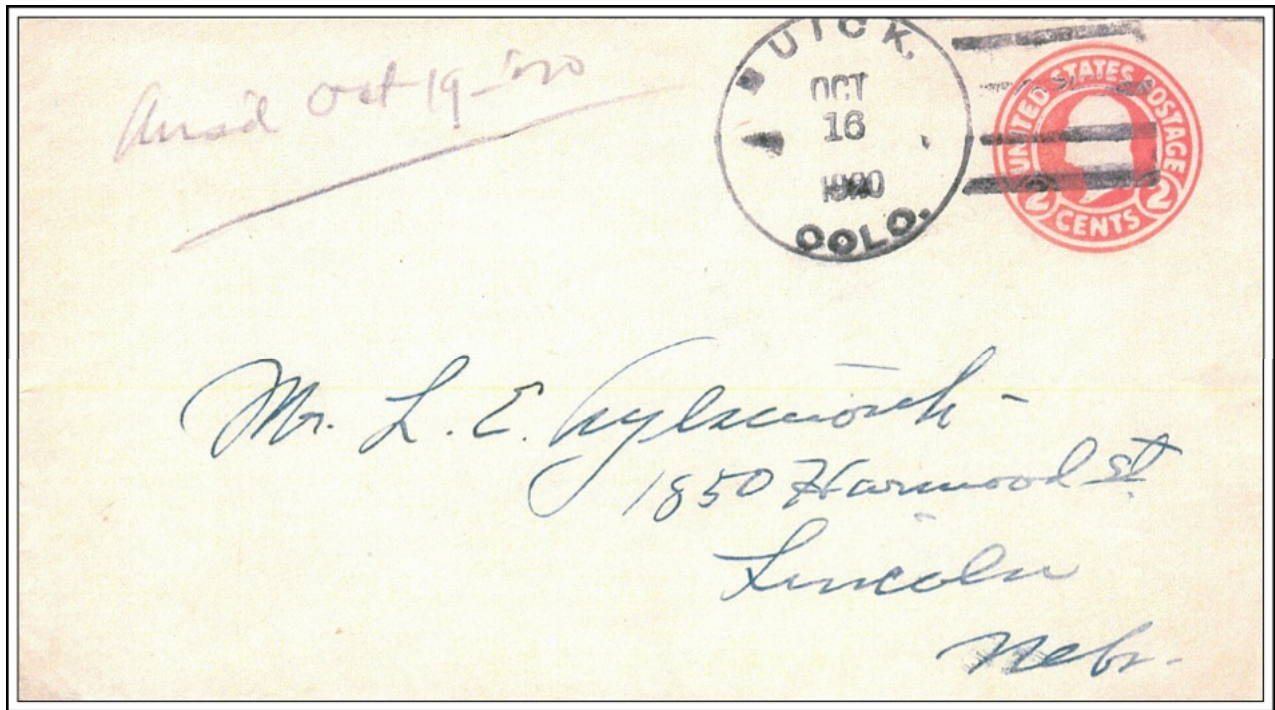 Ans'd Oct 19-'20
BUICK,
OCT
16
1920
COLO.
UNITED STATES POSTAGE
2 CENTS 2
Mr. L. E. Aylsworth -
1850 Harwood St
Lincoln
Nebr.